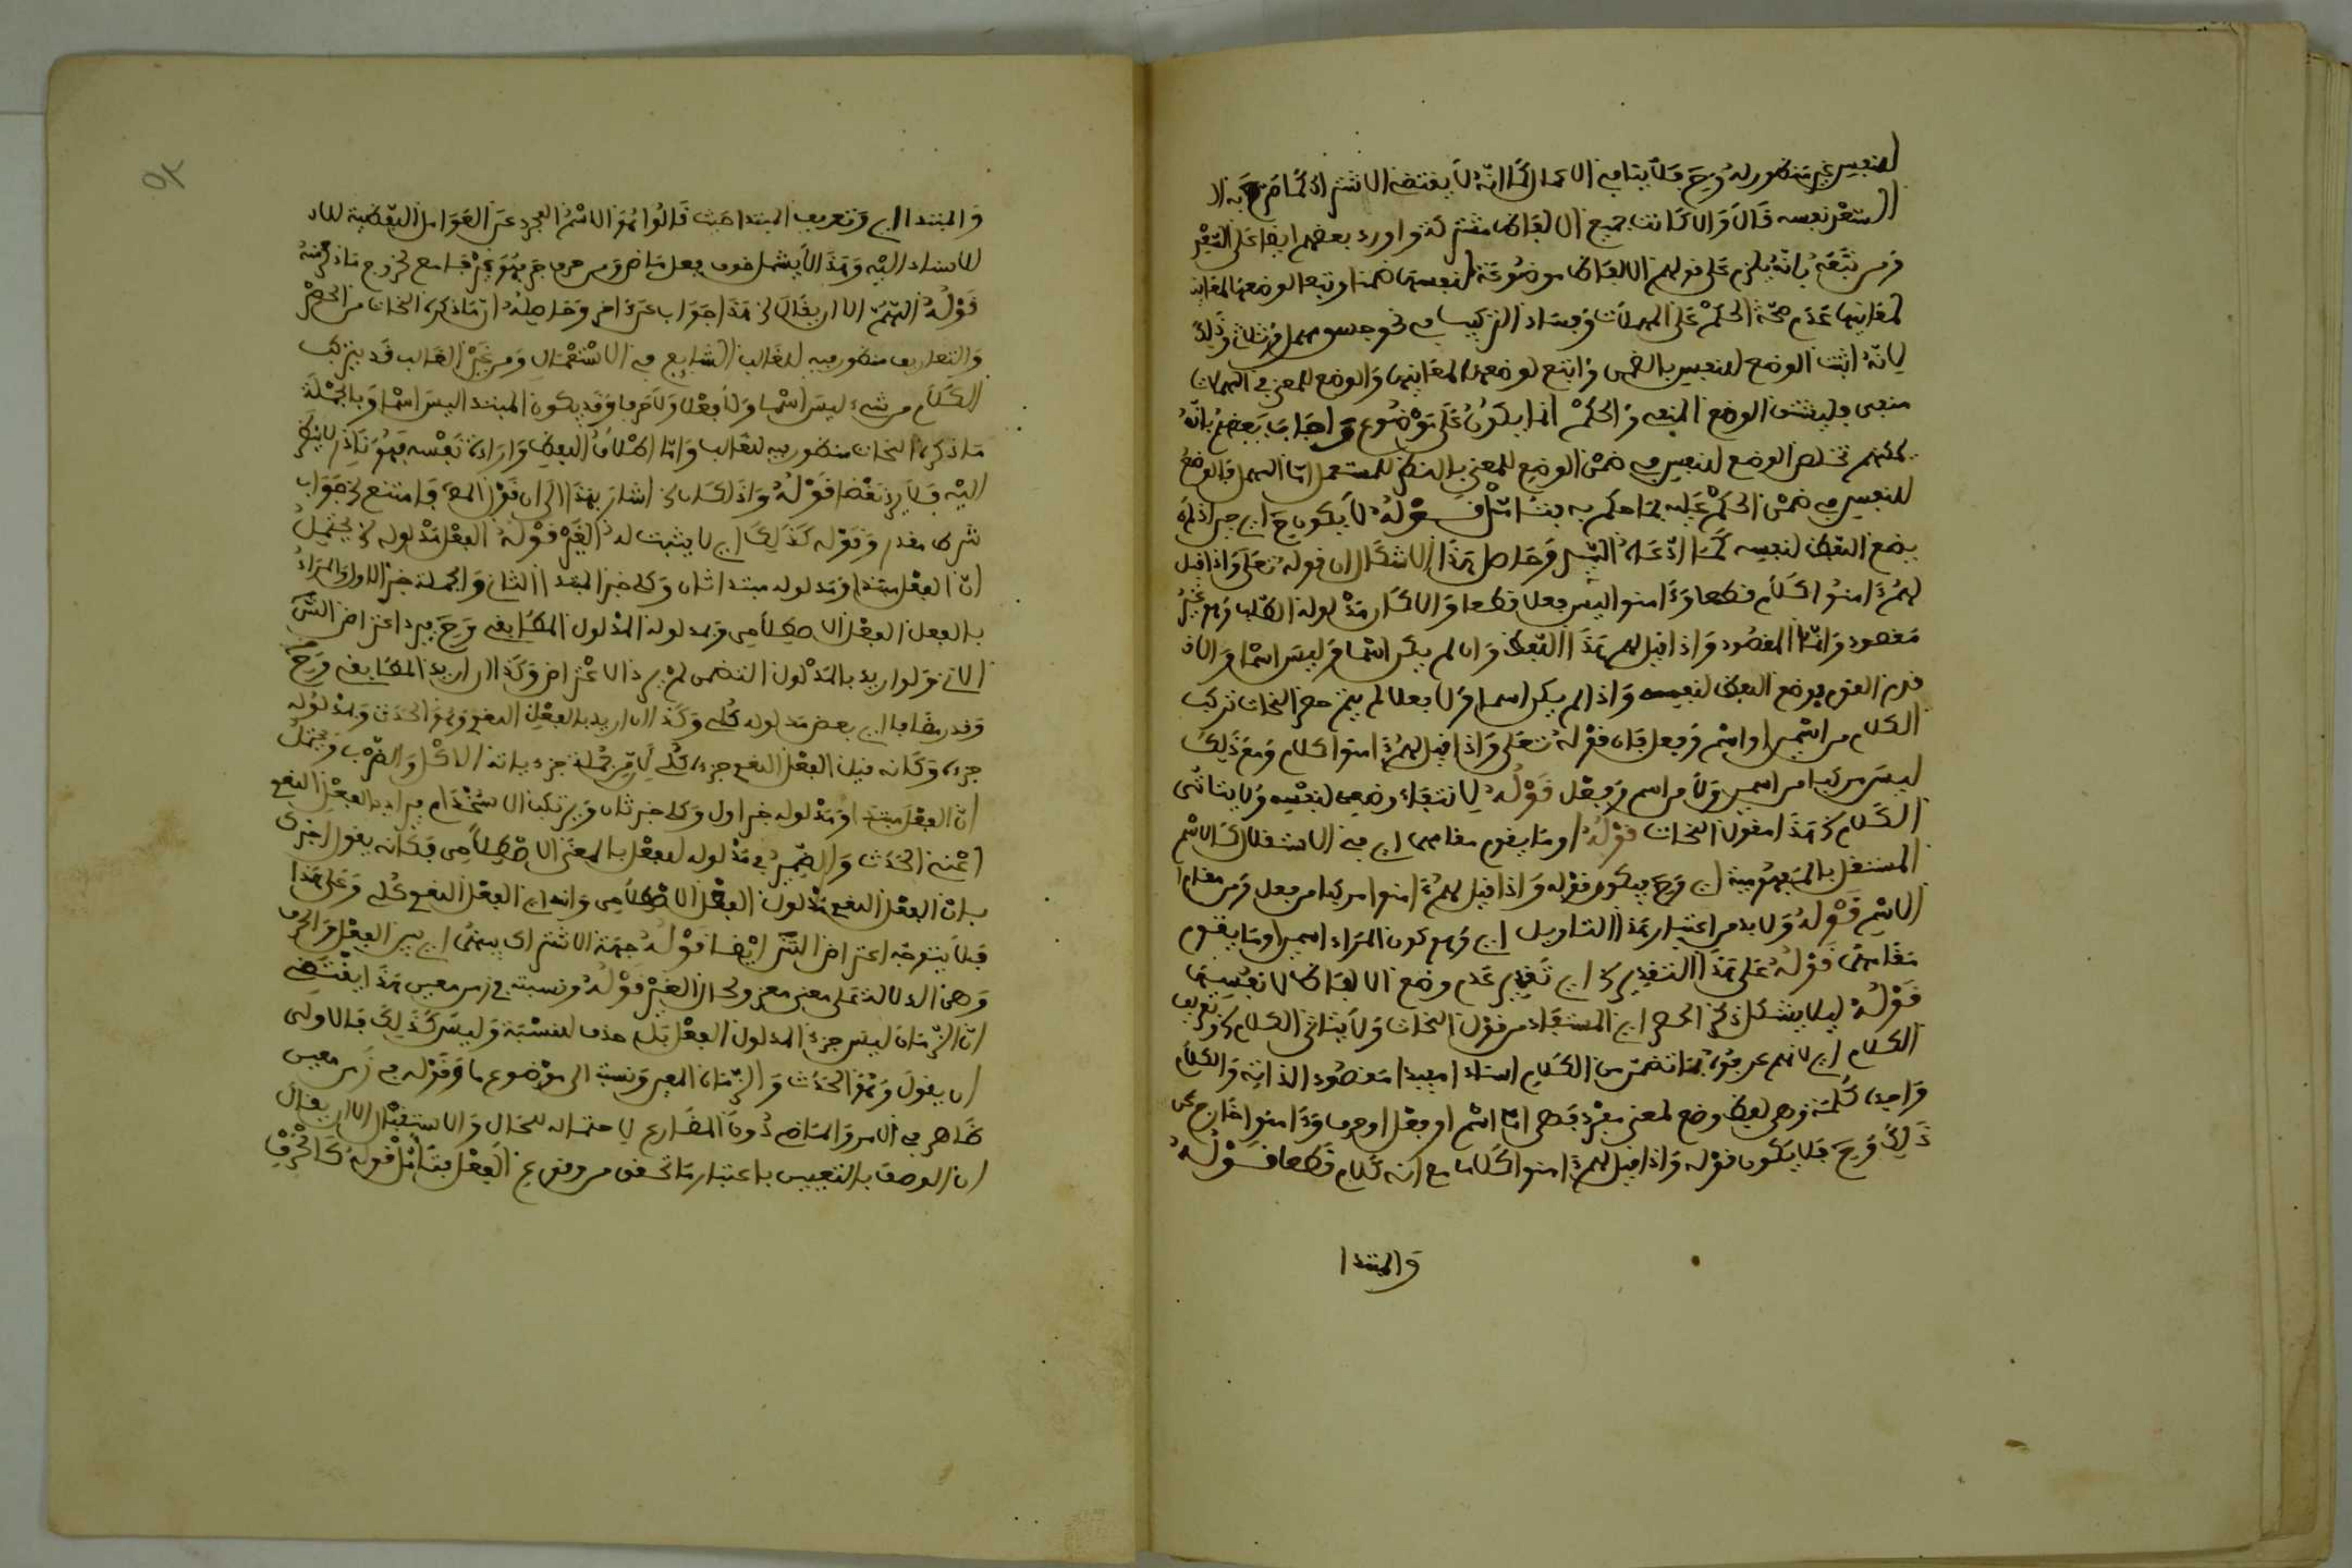 للنفس غير منظور له وح فلا ينافي الا انه لا يقتضي الاشتراك كما صرح به
السعد نفسه قال والا كانت جميع الالفاظ مشتركة واورد بعضهم ايضا على السعد
ومن تبعه بانه يلزم على قولهم الالفاظ موضوعة لنفسها ضمنا وتبعا لوضعها لمعانيها
لمعانيها عدم صحة الحكم على المهملات وفساد التركيب في نحو جسق مهمل وذلك
لانه اثبت الوضع للنفس بالضمن واتبع لوضعها لمعانيها والوضع للمعنى في المهملات
منفي فلينتف الوضع والحكم انما يكون على موضوع واجاب بعضهم بانه
يمكنهم الوضع للنفس في ضمن الوضع للمعنى بالنظر للمستعمل اما المهمل فالوضع
للنفس في ضمن الحكم عليه بما حكم به فتامل قوله لا يكون ح اي حين اذ لم
يوضع اللفظ لنفسه كما ادعاه السيد وحاصل هذا الاشكال ان قوله تعلى واذا قيل
لهم ءامنوا كلام قطعا وءامنوا ليس فعلا قطعا والا كان مدلوله الطلب وهو غير
مقصود وانما المقصود واذا قيل لهم هذا اللفظ وان لم يكن اسما وليس اسما والا
فوضع اللفظ لنفسه واذا لم يكن اسما ولا فعلا لم يتم حصر النحات تركيب
الكلام من اسمين او اسم وفعل فان قوله تعلى واذا قيل لهم ءامنوا كلام ومع ذلك
ليس مركبا من اسمين ولا من اسم وفعل قوله لانتفاء وضعه لنفسه ولا يتاتى
الكلام هذا مقول النحات قوله او ما يقوم مقامهما اي في الاستقلال كالاسم
المستقل بالمفهومية اي وح فيكون قوله واذا قيل لهم ءامنوا مركبا من فعل ومن مقام
الاسم قوله ولا بد من اعتبار هذا التاويل اي وهو كون المراد اسمين او ما يقوم
مقامهما قوله على هذا التقدير اي تقدير عدم وضع الالفاظ لانفسها
قوله ليلا يشكل ذكر الحصر اي المستفاد من قول النحات ولا يتاتى الكلام وتعريف
الكلام اي لانهم عرفوه بما تضمن من الكلم اسنادا مفيدا مقصودا لذاته والكلم
واحده كلمة وهي لفظ وضع لمعنى مفرد فهي اما اسم او فعل او حرف وءامنوا خارج عن
ذلك وح فلا يكون قوله واذا قيل لهم ءامنوا كلاما مع انه كلام قطعا قوله
والمبتدا
والمبتدا اي وتعريف المبتدا حيث قالوا هو الاسم المجرد عن العوامل اللفظية
للاسناد اليه وهذا لا يشمل ضرب فعل ماض ومن حرف جر فهو غير جامع لخروج ما ذكر منه
قوله اللهم الا ان يقال هذا جواب اخر وحاصله ان ما ذكره النحات من الحصر
والتعاريف منظور فيه للغالب الشايع في الاستعمال ومن غير الغالب قد يتركب
الكلام من شيء ليس اسما ولا فعلا ولا حرفا وقد يكون المبتدا ليس اسما وبالجملة
ما ذكره النحات منظور فيه للغالب واما اطلاق اللفظ وارادة نفسه فهو نادر لا ينظر
اليه فلا يرد نقضا قوله واذا كان اشار بهذا الى ان قول المص فامتنع جواب
شرط مقدر وقوله كذلك اي لا يثبت له الغير قوله الفعل مدلوله يحتمل
ان الفعل مبتدا ومدلوله مبتدا ثان وكلي خبر المبتدا الثاني والجملة خبر الاول والمراد
بالفعل الفعل الاصطلاحي ومدلوله المدلول المطابقي وح يرد اعتراض الش
الاتي ولو اريد بالمدلول التضمني لم يرد الاعتراض وكذا ان اريد المطابقي وح
وقدر مضاف اي بعض مدلوله كلي وكذا ان اريد بالفعل اللغوي وهو الحدث ومدلوله
جزء وكانه قيل الفعل اللغوي جزءه كلي اي من جملة جزءياته الاكل والضرب ويحتمل
ان الفعل مبتدا ومدلوله خبر اول وكلي خبر ثان ويرتكب الاستخدام فيراد بالفعل اللغوي
اعني الحدث والضمير في مدلوله للفعل بالمعنى الاصطلاحي فكانه يقول اخبرك
بان الفعل اللغوي مدلول الفعل الاصطلاحي وانه اي الفعل اللغوي كلي وعلى هذا
فلا يتوجه اعتراض الش ايضا قوله جهة الاشتراك بينهما اي بين الفعل والحرف
وهي الدلالة على معنى حال الغير قوله ونسبته في زمن معين هذا يقتضي
ان الزمان ليس جزء المدلول الفعل بل صفة للنسبة وليس كذلك فالاولى
ان يقول وهو الحدث والزمان المعين ونسبة الى موضوع ما وقوله في زمن معين
ظاهر في الامر والماضي دون المضارع لاحتماله للحال والاستقبال الا ان يقال
ان الوصف بالتعيين باعتبار ما تحقق من وقوع الفعل فتامل قوله كالحرف